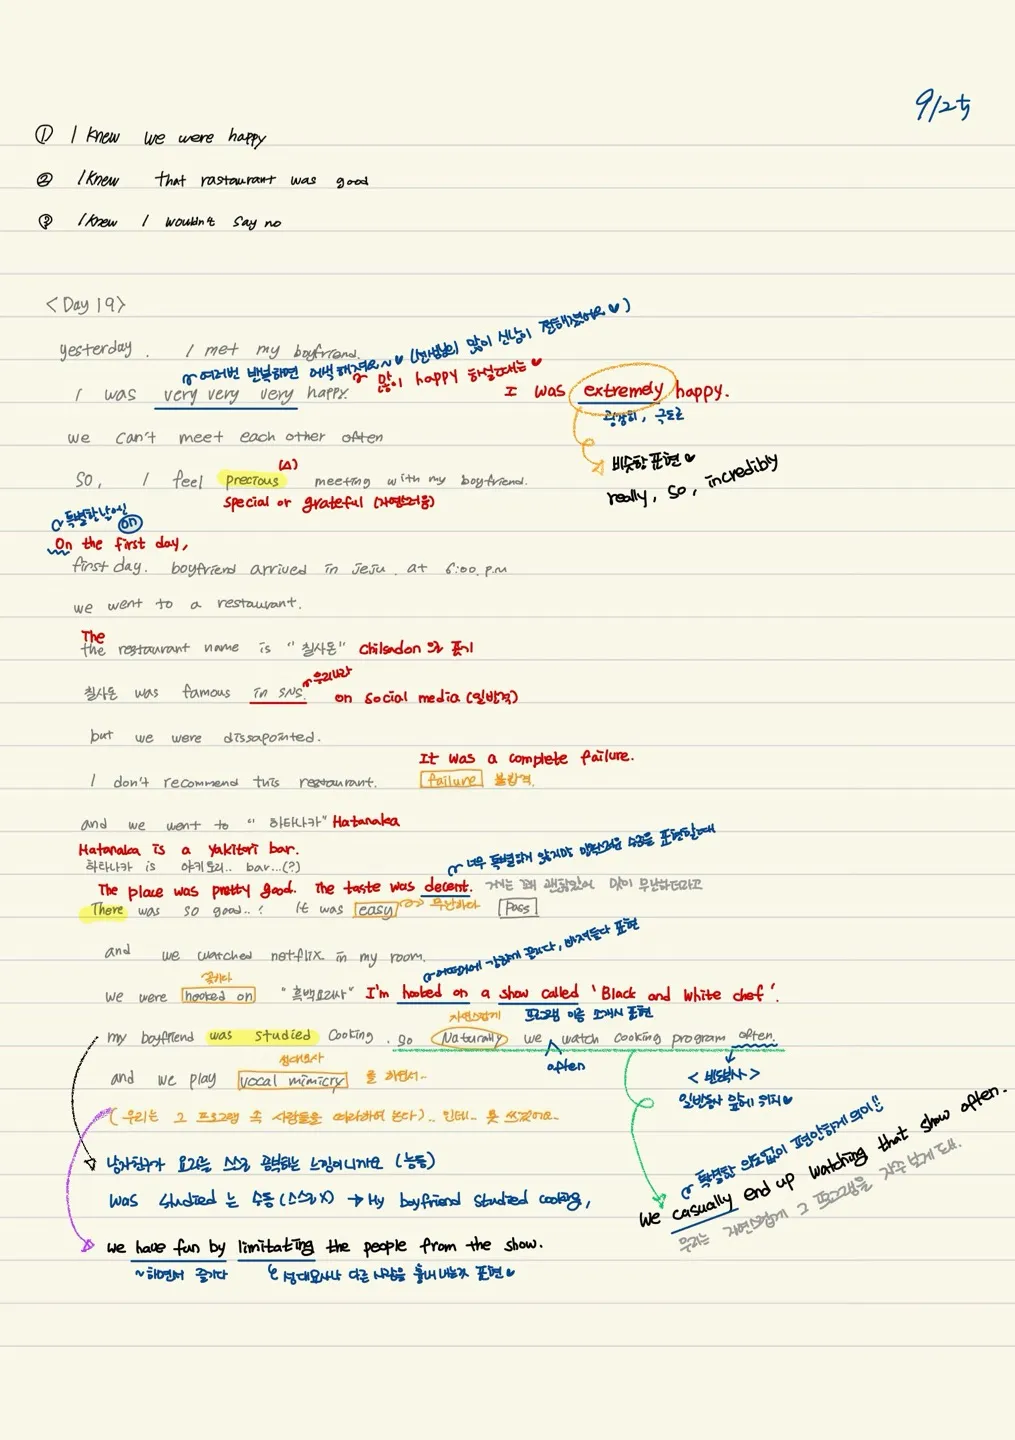 9/25
① I knew we were happy
② I knew that rastaurant was good
③ I knew I wouldn't say no
<Day 19>
yesterday. I met my boyfriend.
여러번 반복하면 어색해져요~♥ (선생님의 많이 신남이 전해졌어요♥)
많이 happy 하실때는♥
I was very very very happy.
I was extremely happy.
굉장히, 극도로
we can't meet each other often
비슷한 표현♥
really, so, incredibly
(△)
So, I feel precious meeting with my boyfriend.
special or grateful (자연스러움)
특별한 날엔 on
On the first day,
first day. boyfriend arrived in jeju. at 6:00. p.m
we went to a restaurant.
The
the restaurant name is "칠사돈" Chilsadon 으로 표기
우리나라
칠사돈 was famous in SNS. on social media (일반적)
but we were dissapointed.
It was a complete failure.
I don't recommend this restaurant. failure 불합격.
and we went to "하타나카" Hatanaka
Hatanaka is a yakitori bar.
하타나카 is 야키토리.. bar...(?)
너무 특별하진 않지만 만족스러운 수준을 표현할때
The place was pretty good. The taste was decent. 거기는 꽤 괜찮았어 맛이 무난하더라고
There was so good..! It was easy 무난하다 pass
and we watched netflix in my room.
어떠어에 강하게 끌리다, 빠져들다 표현
꽂히다
we were hooked on "흑백요리사" I'm hooked on a show called 'Black and White chef'.
자연스럽게 프로그램 이름 소개시 표현
my boyfriend was studied Cooking. so Naturally we watch cooking program often.
often
<빈도부사>
일반동사 앞에 위치♥
성대모사
and we play vocal mimicry 를 하면서~
(우리는 그 프로그램 속 사람들을 따라하며 논다).. 인데.. 못 쓰겠어요..
남자친구가 요리를 스스로 공부하는 느낌이니까요 (능동)
was studied 는 수동 (스스로X) → My boyfriend studied cooking,
특별한 의도없이 편안하게 의미!!
we casually end up watching that show often.
우리는 자연스럽게 그 프로그램을 자주 보게 돼.
we have fun by limitating the people from the show.
~하면서 즐기다
성대모사나 다른 사람을 흉내 내는것 표현♥